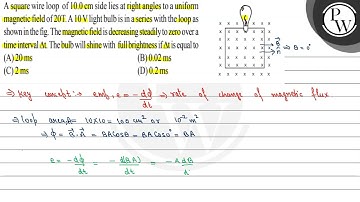 A square wire loop of 10.0 cm side lies at right angles to a uniform
magnetic field of 20T. A 10 V light bulb is in a series with the loop as
shown in the fig. The magnetic field is decreasing steadily to zero over a
time interval Δt. The bulb will shine with full brightness if Δt is equal to
(A) 20 ms (B) 0.02 ms
(C) 2 ms (D) 0.2 ms
⇒ θ = 0°
⇒ Key concept :→ emf, e = -dφ/dt ⇒ rate of change of magnetic flux
⇒ loop area, A = 10×10 = 100 cm² or 10⁻² m²
⇒ φ = B⃗.A⃗ = BA cosθ = BA cos0° = BA
e = -dφ/dt = -d(BA)/dt = -A dB